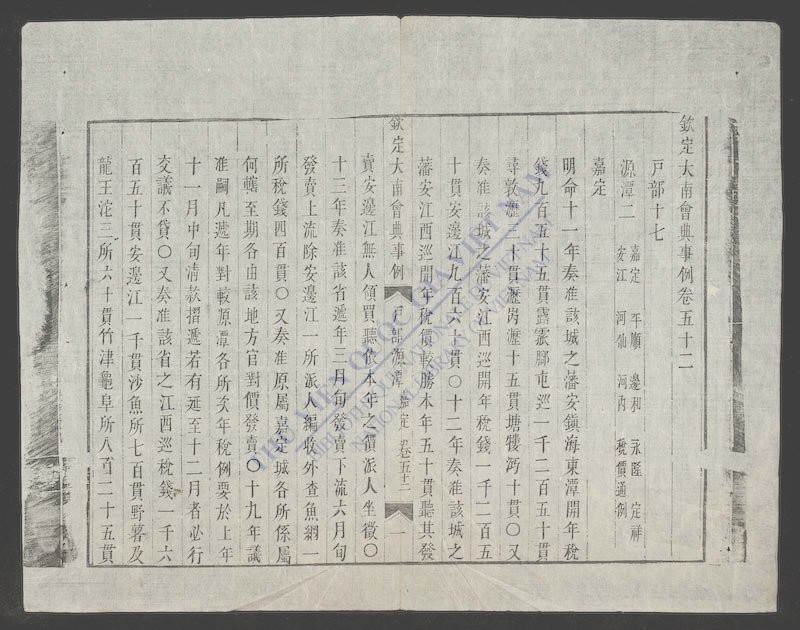 欽定大南會典事例卷五十二
戸部十七
源潭二
嘉定 平順 邊和 永隆 定祥
安江 河仙 河内 稅價通例
嘉定
明命十一年奏准該城之藩安鎭海東潭開年稅
錢九百五十五貫露㶟腳屯巡一千二百五十貫
尋敦瀝三十貫瀝岗瀝十五貫塘犢沔十貫〇又
奏准該城之藩安江西巡開年稅錢一千二百五
十貫安邊江九百六十貫〇十二年奏准該城之
藩安江西巡開年稅價較勝本年五十貫聽其發
欽定大南會典事例 戸部源潭 嘉定 卷五十二 一
賣安邊江無人領買聽依本年之價派人坐徵〇
十三年奏准該省遞年三月旬發賣下流六月旬
發賣上流除安邊江一所派人編收外查魚網一
所稅錢四百貫〇又奏准原屬嘉定城各所係屬
何轄至期各由該地方官對價發賣〇十九年議
准嗣凡遞年對較源潭各所次年稅例要於上年
十一月中旬清款摺遞若有延至十二月者必行
交議不貸〇又奏准該省之江西巡稅錢一千六
百五十貫安邊江一千貫沙魚所七百貫野暮及
龍王沱三所六十貫竹津龜阜所八百二十五貫
THƯ VIỆN QUỐC GIA VIỆT NAM
BIBLIOTHÈQUE NATIONALE DU VIETNAM
NATIONAL LIBRARY OF VIETNAM